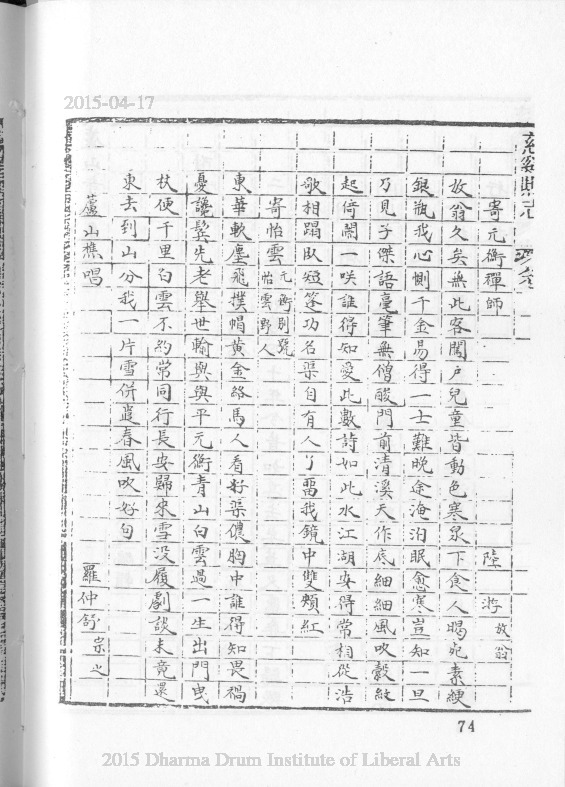 2015-04-17
寄元衡禪師
陸 游 放翁
放翁久矣無此客闖户兒童皆動色寒泉下食人暍宛素綆
銀瓶我心惻千金易得一士難晚途淹泊眠愈寒豈知一旦
乃見子傑語毫筆無僧酸門前清溪天作底細細風吹縠紋
起倚闌一咲誰得知愛此數詩如此水江湖安得常相從浩
歌相蹋臥短篷功名渠自有人了畱我鏡中雙頰紅
寄怡雲 元衡別號怡雲野人
東華軟塵飛撲帽黃金絡馬人看好渠儂胸中誰得知畏禍
憂讒鬂先老舉世輸與與平元衡青山白雲過一生出門曳
杖便千里白雲不約常同行長安歸來雪没履劇談未竟還
東去到山分我一片雪併遣春風吹好句
蘆山樵唱
羅仲舒 宗之
74
2015 Dharma Drum Institute of Liberal Arts